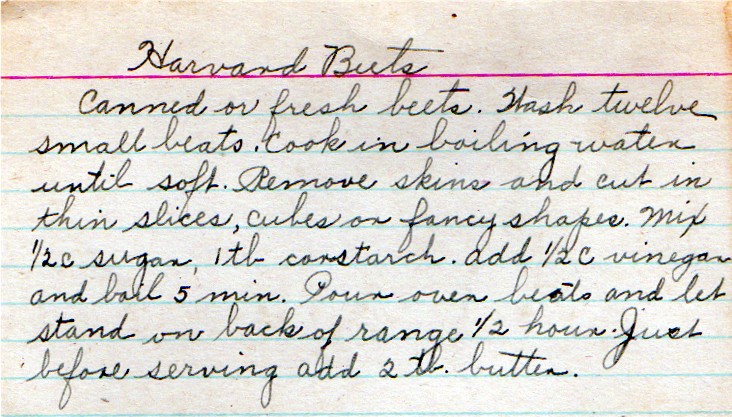 Harvard Beets
Canned or fresh beets. Wash twelve
small beats. Cook in boiling water
until soft. Remove skins and cut in
thin slices, cubes or fancy shapes. Mix
1/2 c sugar, 1 tb constarch. add 1/2 c vinegar
and boil 5 min. Pour over beats and let
stand on back of range 1/2 hour. Just
before serving add 2 tb. butter.